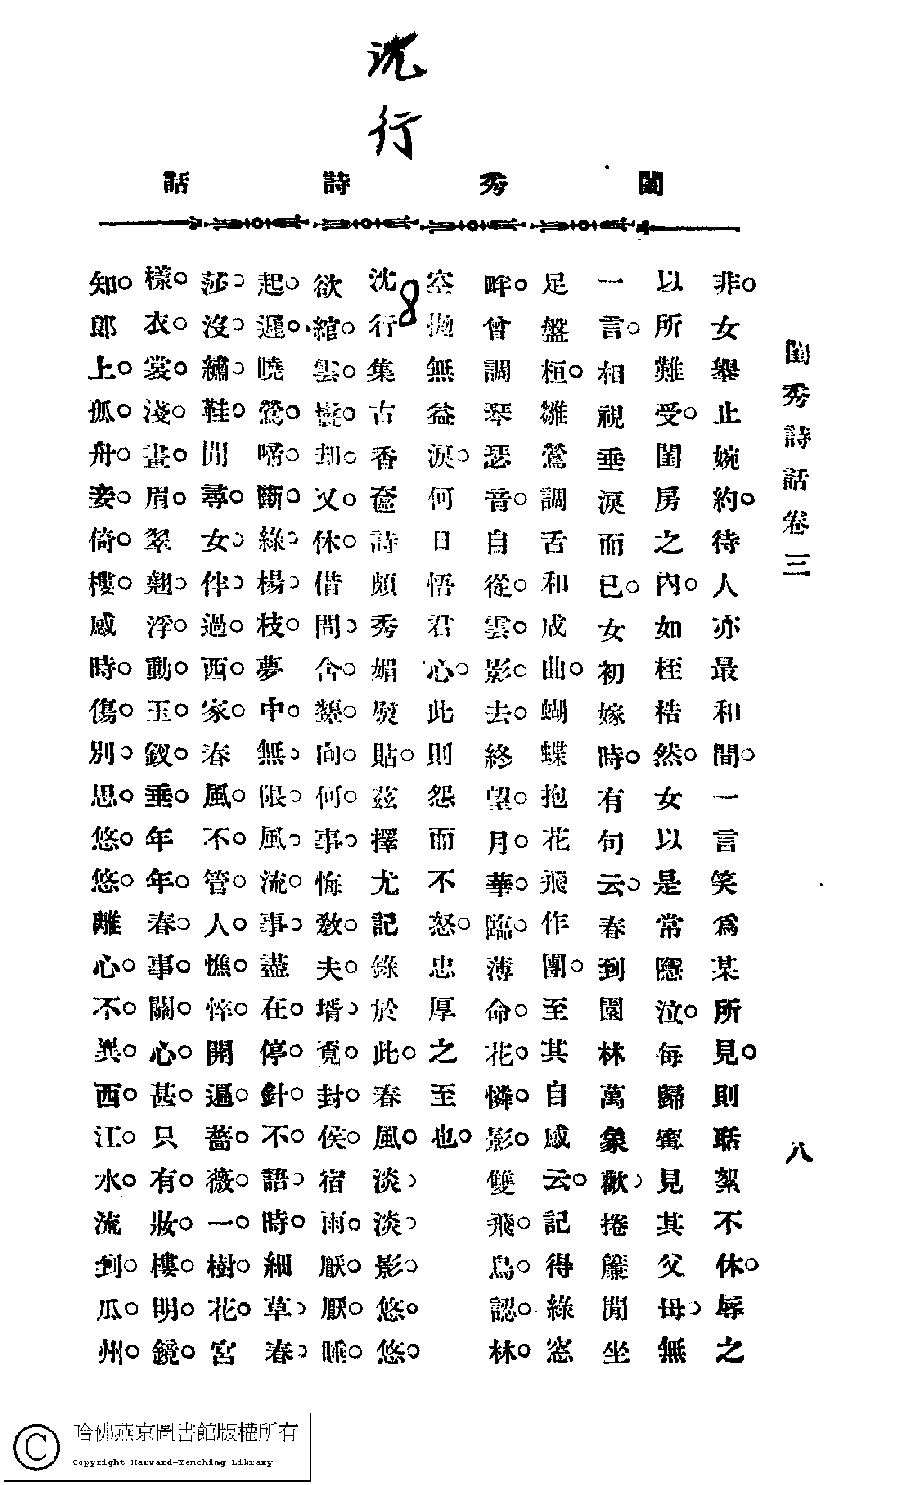 沈行
閨秀詩話
閨秀詩話卷三
八
非女舉止婉約待人亦最和間一言笑爲某所見則聒絮不休辱之
以所難受閨房之內如桎梏然女以是常隱泣每歸寧見其父母無
一言相視垂淚而已女初嫁時有句云春到園林萬象歡捲簾閒坐
足盤桓雛鶯調舌和成曲蝴蝶抱花飛作團至其自感云記得綠窓
眸曾調琴瑟音自從雲影去終望月華臨薄命花憐影雙飛鳥認林
空拋無益淚何日悟君心此則怨而不怒忠厚之至也
8
沈行集古香奩詩頗秀媚熨貼茲擇尤記錄於此春風淡淡影悠悠
欲綰雲鬟却又休借問含顰向何事悔敎夫壻覓封侯宿雨厭厭睡
起遲曉鶯啼斷綠楊枝夢中無限風流事盡在停針不語時細草春
莎沒繡鞋閒尋女伴過西家春風不管人憔悴開遍薔薇一樹花宮
樣衣裳淺畫眉翠翹浮動玉釵垂年年春事關心甚只有妝樓明鏡
知郎上孤舟妾倚樓感時傷別思悠悠離心不異西江水流到瓜州
哈佛燕京圖書館版權所有
Copyright Harvard-Yenching Library